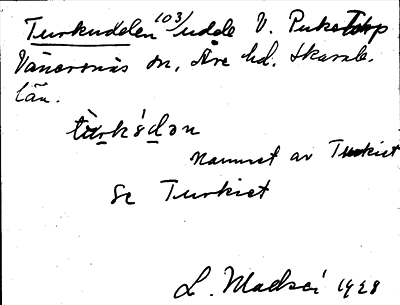 Turkudden 103/ udde V. Puketorp
Vänersnäs sn, Åse hd. Skarab.
län.
tùrkúdən
Namnet av Turkiet
Se Turkiet
L. Madsé 1928